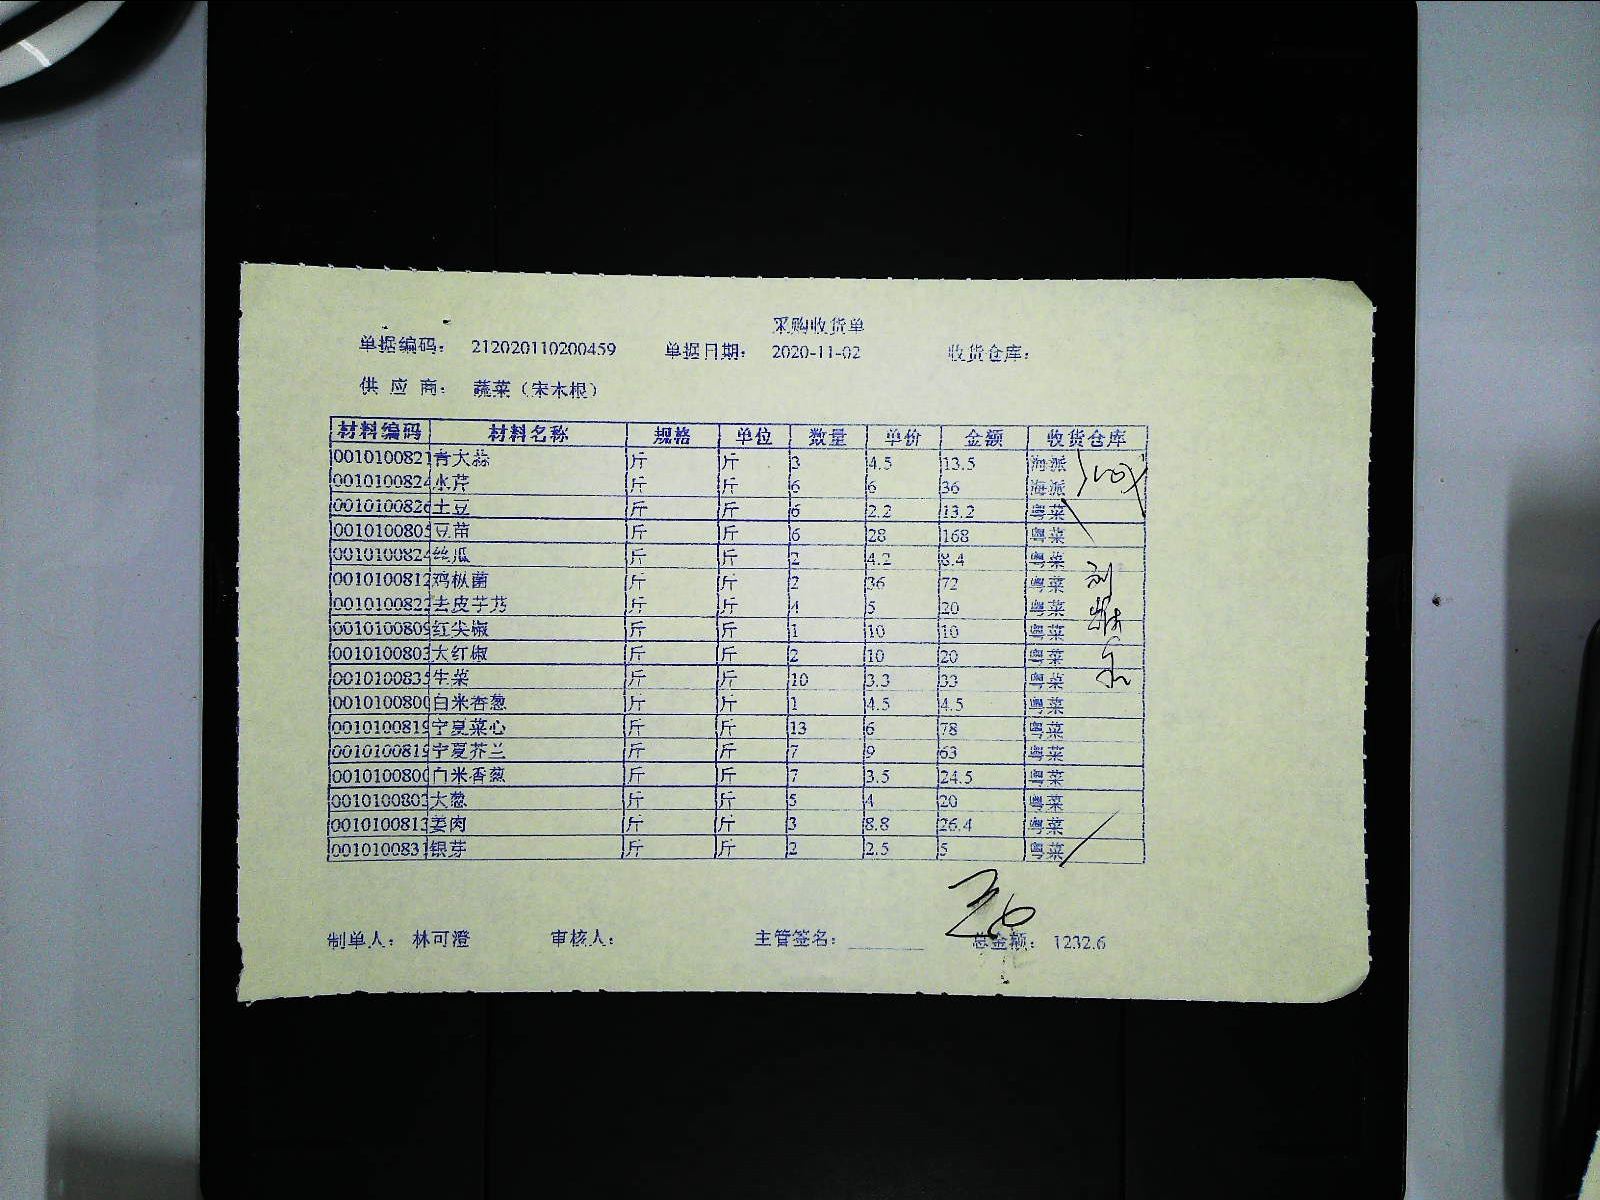 采购收货单
单据编码： 212020110200459 单据日期： 2020-11-02 收货仓库：
供 应 商： 蔬菜（宋木根）
材料编码 材料名称 规格 单位 数量 单价 金额 收货仓库
0010100821 青大蒜 斤 斤 3 4.5 13.5 海派
001010082 水芹 斤 斤 6 6 36 海派
001010082 土豆 斤 斤 6 2.2 13.2 粤菜
001010080 豆苗 斤 斤 6 28 168 粤菜
001010082 丝瓜 斤 斤 2 4.2 8.4 粤菜
001010081 鸡枞菌 斤 斤 2 36 72 粤菜
001010082 去皮芋艿 斤 斤 4 5 20 粤菜
001010080 红尖椒 斤 斤 1 10 10 粤菜
001010080 大红椒 斤 斤 2 10 20 粤菜
001010083 生菜 斤 斤 10 3.3 33 粤菜
001010080 白米香葱 斤 斤 1 4.5 4.5 粤菜
001010081 宁夏菜心 斤 斤 13 6 78 粤菜
001010081 宁夏芥兰 斤 斤 7 9 63 粤菜
001010080 白米香葱 斤 斤 7 3.5 24.5 粤菜
001010080 大葱 斤 斤 5 4 20 粤菜
001010081 姜肉 斤 斤 3 8.8 26.4 粤菜
001010083 银芽 斤 斤 2 2.5 5 粤菜
制单人： 林可澄 审核人： 主管签名： 总金额： 1232.6